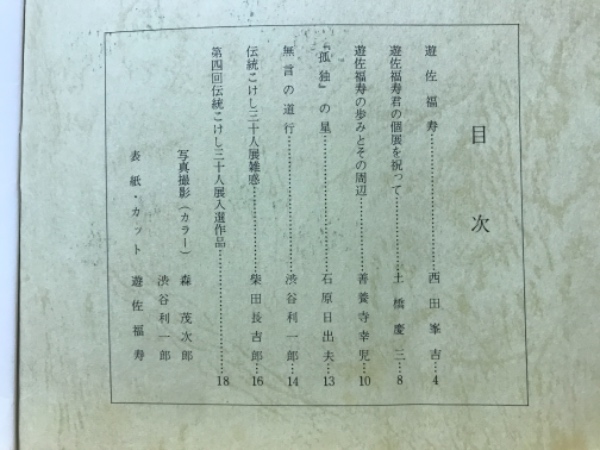 目次
遊佐福寿……………………西田峯吉…4
遊佐福寿君の個展を祝って……………土橋慶三…8
遊佐福寿の歩みとその周辺……………善養寺幸児…10
『孤独』の星……………………石原日出夫…13
無言の道行……………………渋谷利一郎…14
伝統こけし三十人展雑感……………柴田長吉郎…16
第四回伝統こけし三十人展入選作品……………………18
写真撮影(カラー) 森茂次郎
渋谷利一郎
表紙・カット 遊佐福寿